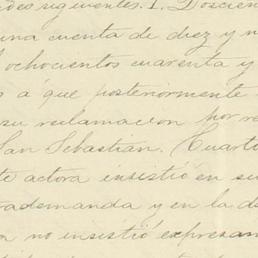 des siguientes. 1. Doscien
una cuenta de diez y n
ochocientos cuarenta y
s á que posteriormente
su reclamacion por re
San Sebastian. Cuarto
te actora insistió en su
rademanda y en la d
no insistió expresan